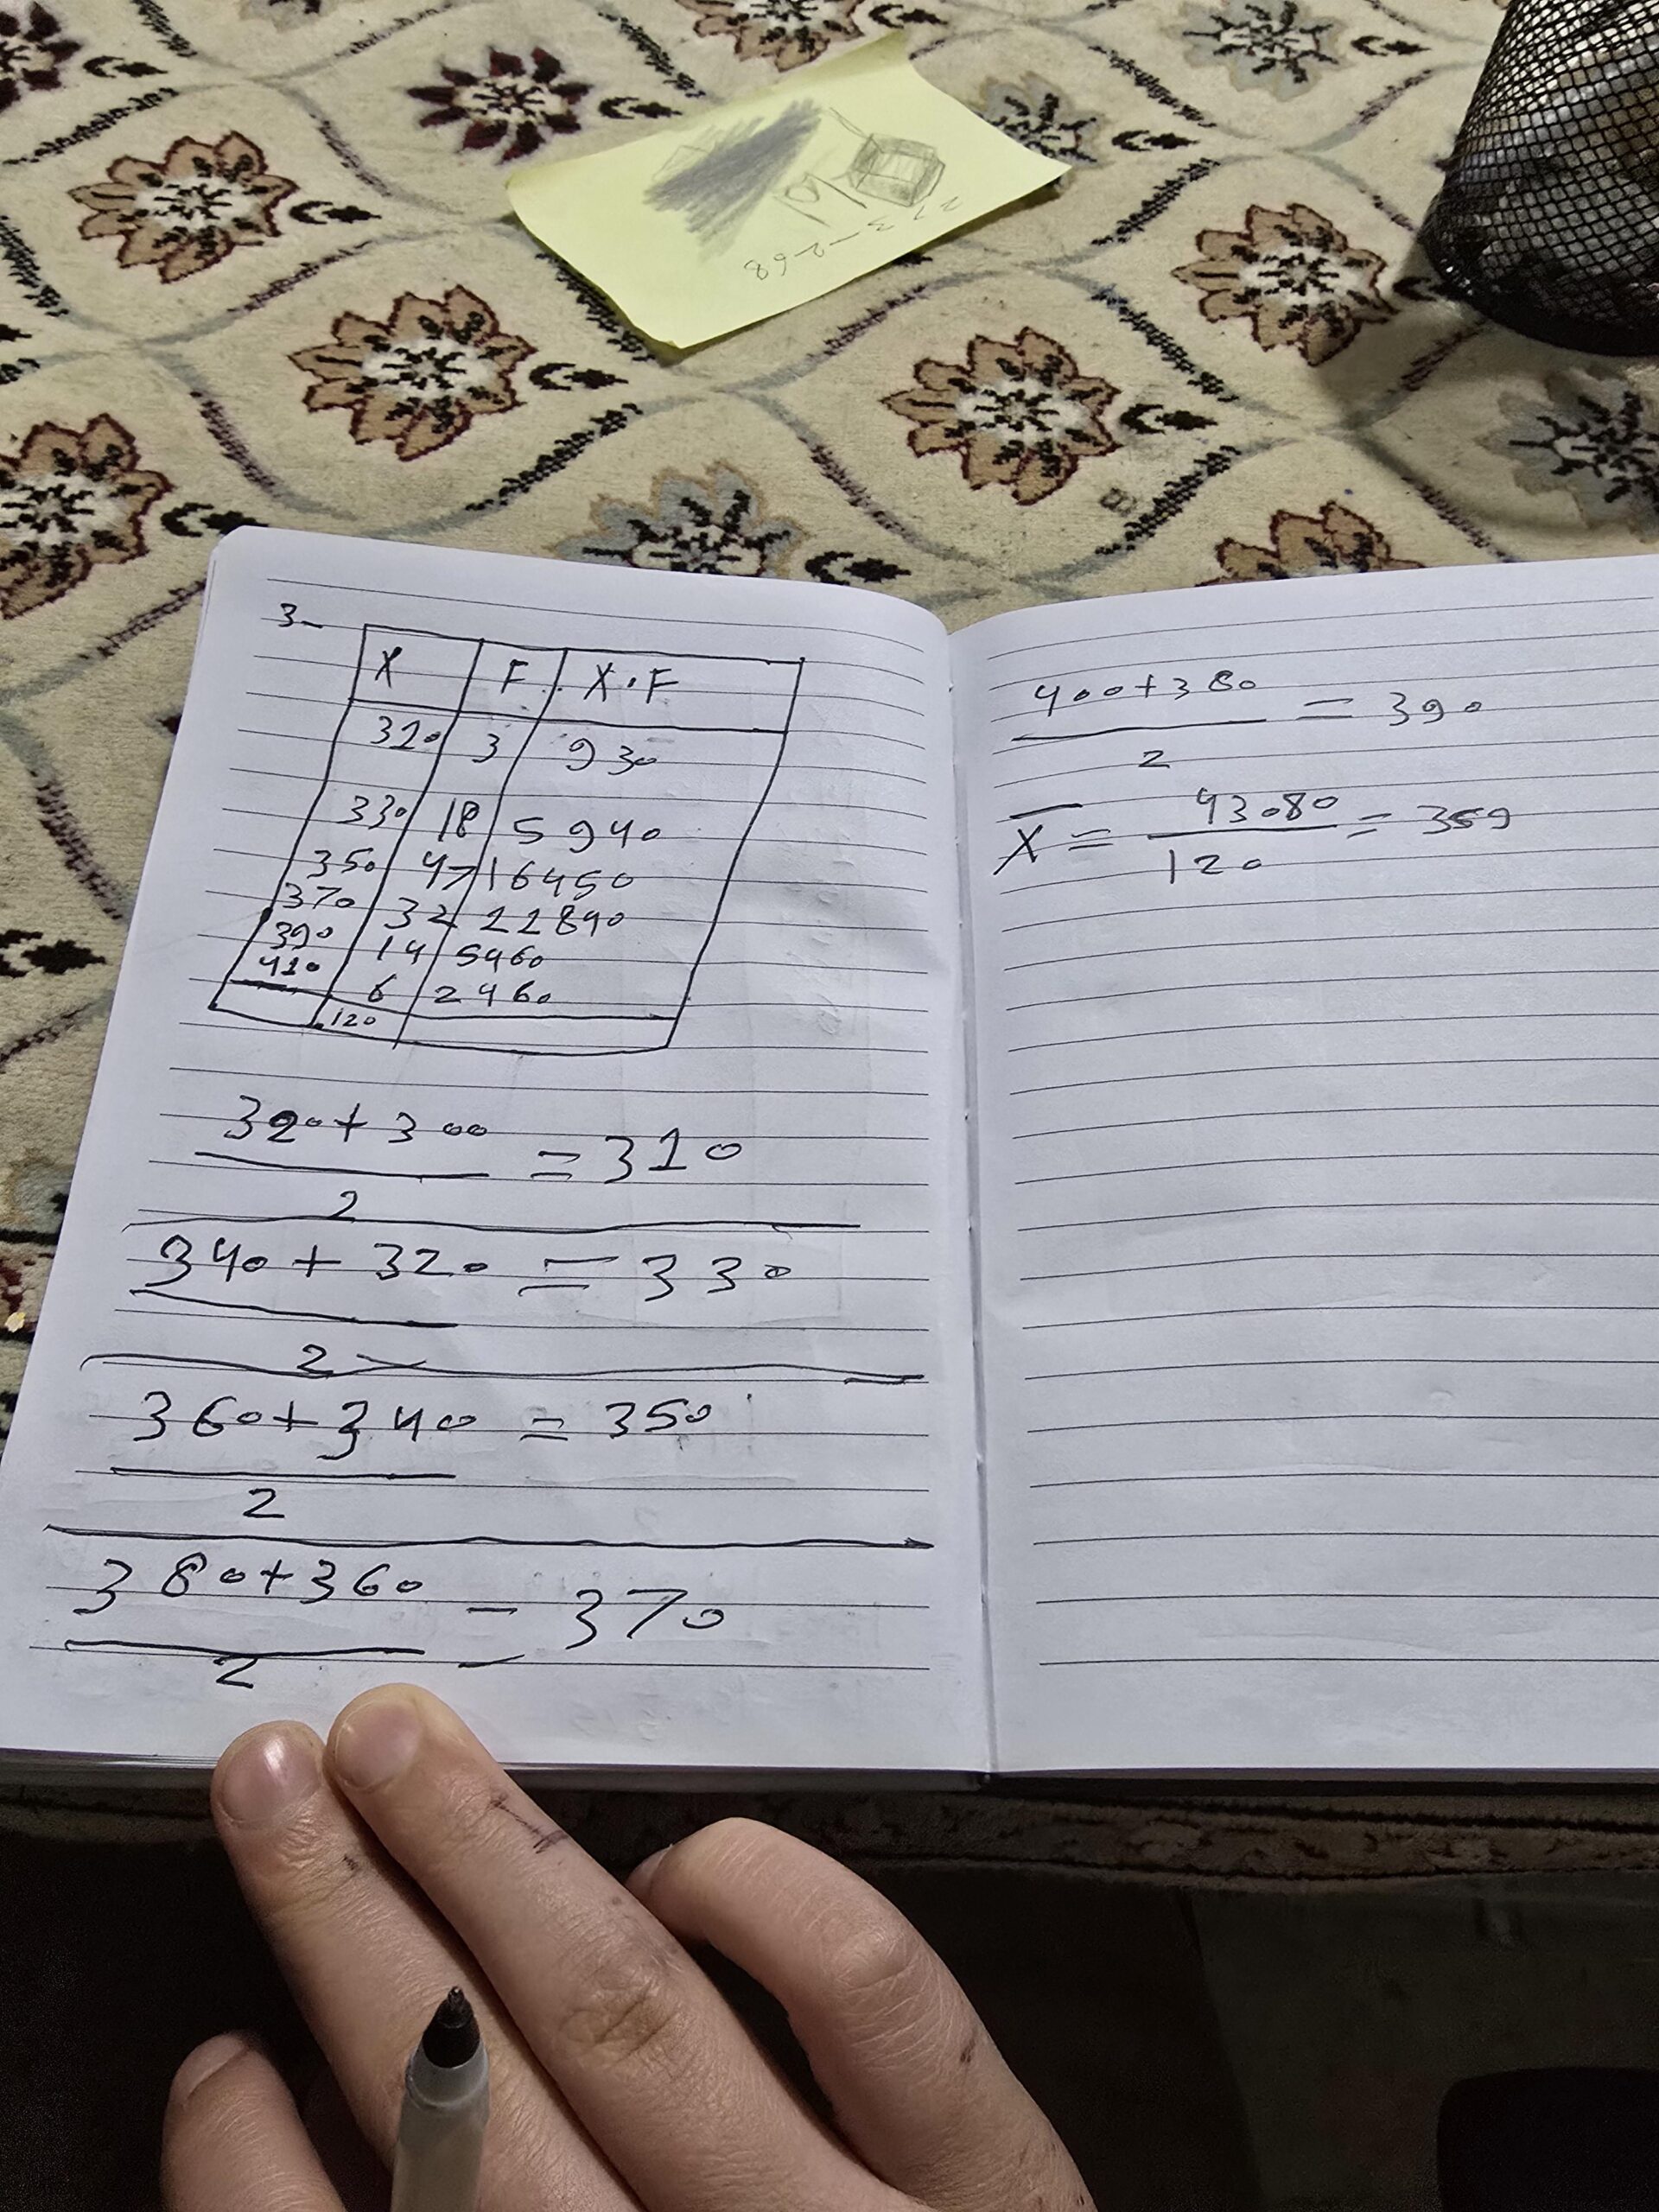 3-
X F X·F
310 3 930
330 18 5940
350 47 16450
370 32 11840
390 14 5460
410 6 2460
120
320+300 = 310
2
340 + 320 = 330
2
360+340 = 350
2
380+360 = 370
2
400+380 = 390
2
X̄ = 43080 = 359
120